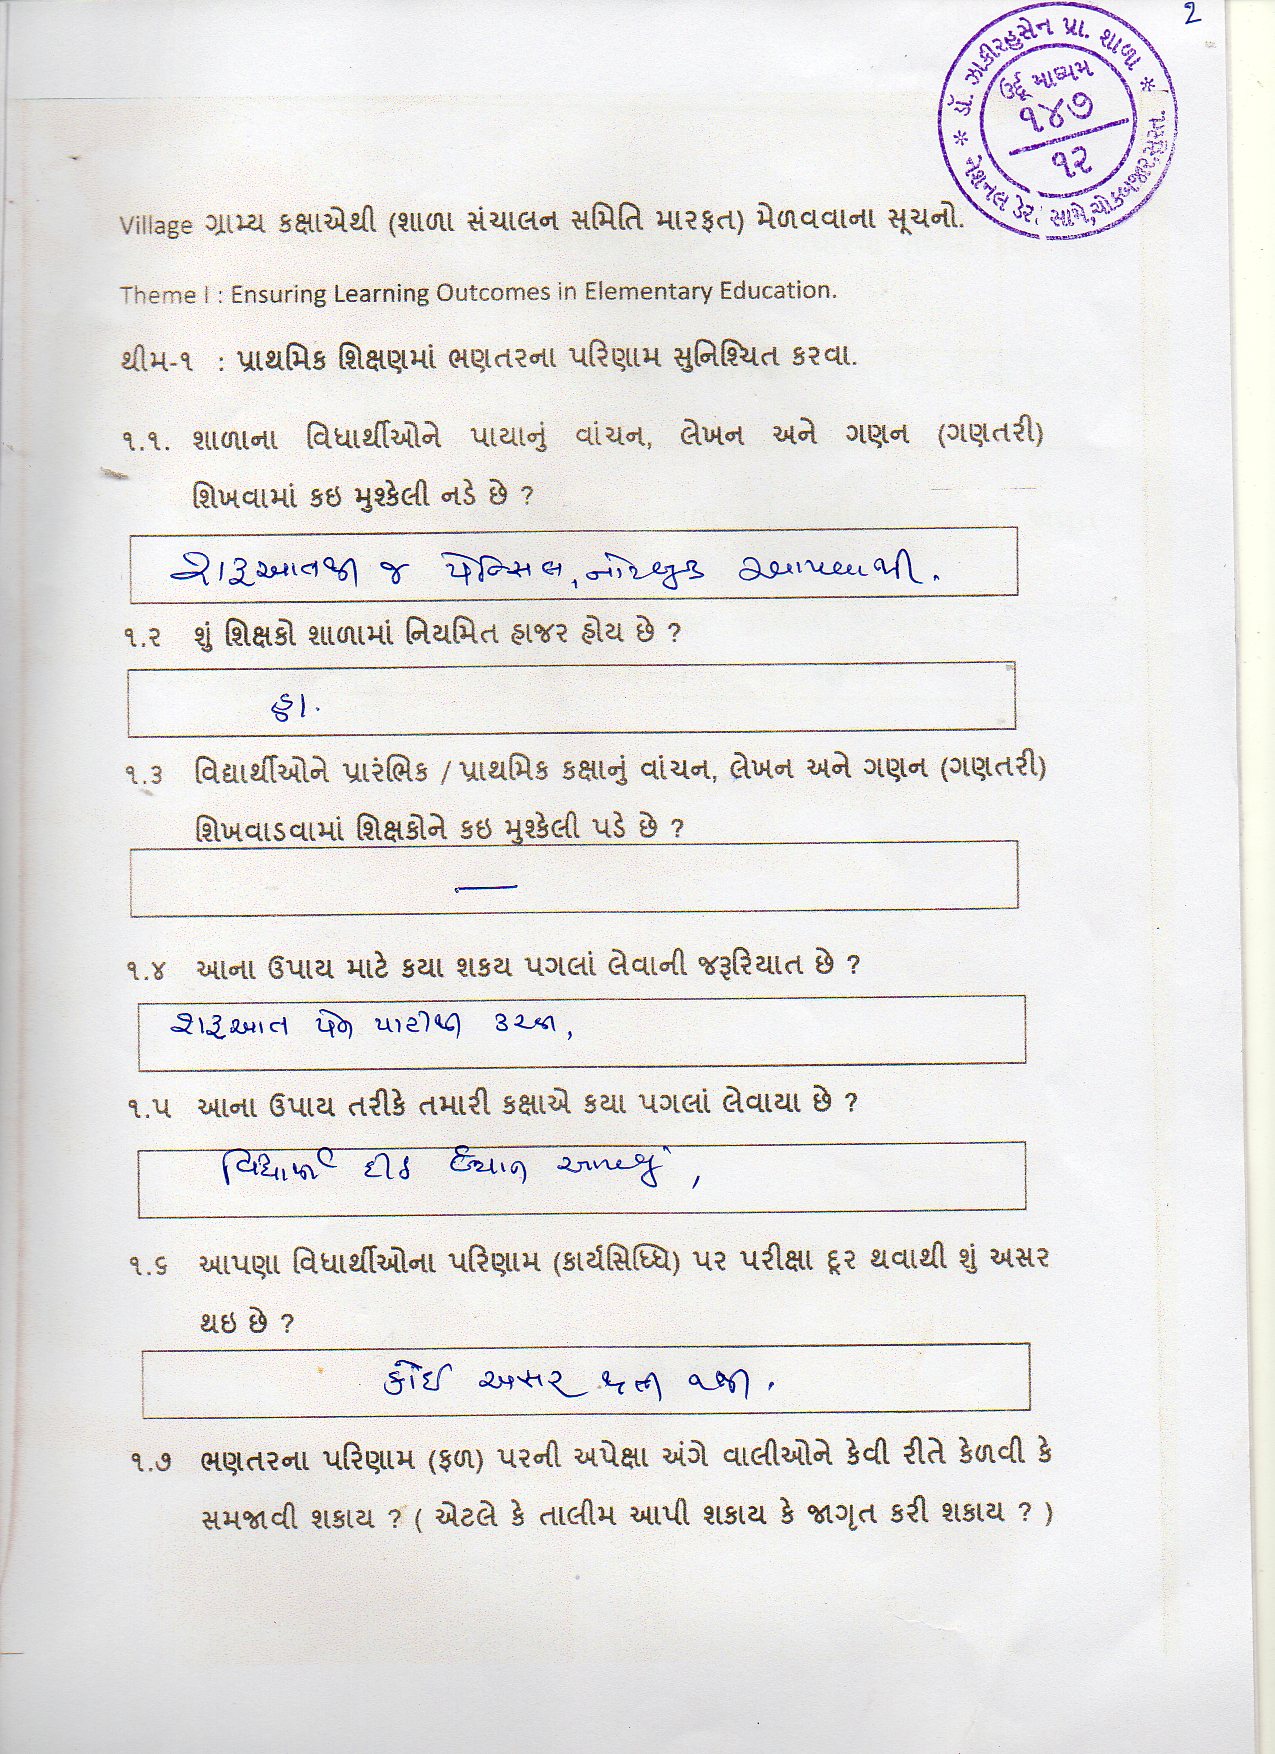 2
ડૉ. ઝાકીરહુસેન પ્રા. શાળા
ઉર્દૂ માધ્યમ
૧૪૭
૧૨
નેશનલ ડેરી સામે, ચોકબજાર, સુરત.
Village ગ્રામ્ય કક્ષાએથી (શાળા સંચાલન સમિતિ મારફત) મેળવવાના સૂચનો.
Theme I : Ensuring Learning Outcomes in Elementary Education.
થીમ-૧ : પ્રાથમિક શિક્ષણમાં ભણતરના પરિણામ સુનિશ્ચિત કરવા.
૧.૧. શાળાના વિધાર્થીઓને પાયાનું વાંચન, લેખન અને ગણન (ગણતરી)
શિખવામાં કઇ મુશ્કેલી નડે છે ?
શરૂઆતથી જ પેન્સિલ, નોટબુક આપવાથી.
૧.૨ શું શિક્ષકો શાળામાં નિયમિત હાજર હોય છે ?
હા.
૧.૩ વિદ્યાર્થીઓને પ્રારંભિક / પ્રાથમિક કક્ષાનું વાંચન, લેખન અને ગણન (ગણતરી)
શિખવાડવામાં શિક્ષકોને કઇ મુશ્કેલી પડે છે ?
—
૧.૪ આના ઉપાય માટે કયા શકય પગલાં લેવાની જરૂરિયાત છે ?
શરૂઆત પેન પાટીથી કરવી,
૧.૫ આના ઉપાય તરીકે તમારી કક્ષાએ કયા પગલાં લેવાયા છે ?
વિદ્યાર્થી દીઠ ધ્યાન આપવું,
૧.૬ આપણા વિધાર્થીઓના પરિણામ (કાર્યસિધ્ધિ) પર પરીક્ષા દૂર થવાથી શું અસર
થઇ છે ?
કોઈ અસર થતી નથી.
૧.૭ ભણતરના પરિણામ (ફળ) પરની અપેક્ષા અંગે વાલીઓને કેવી રીતે કેળવી કે
સમજાવી શકાય ? ( એટલે કે તાલીમ આપી શકાય કે જાગૃત કરી શકાય ? )